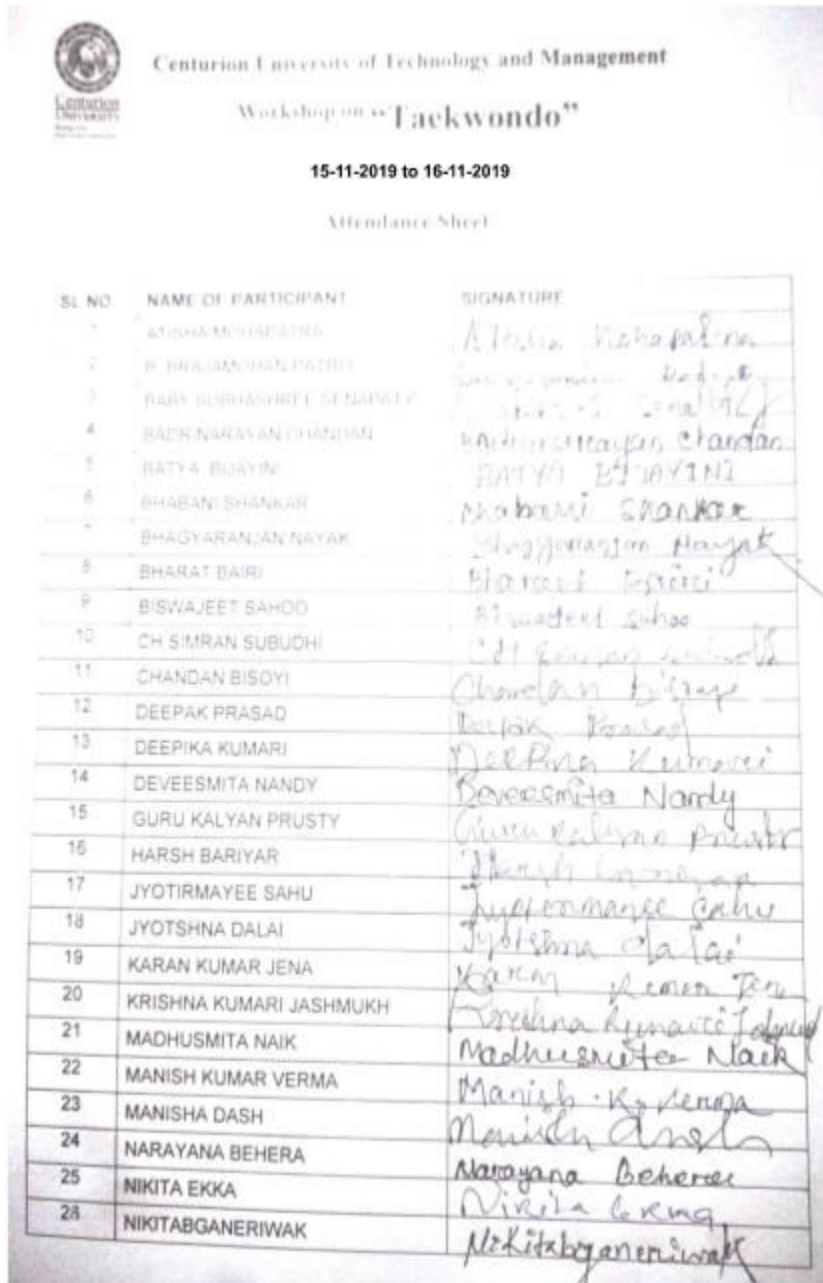 Centurion University of Technology and Management
Centurion
University
Workshop on "Taekwondo"
15-11-2019 to 16-11-2019
Attendance Sheet
SL NO NAME OF PARTICIPANT SIGNATURE
1 ATISHA MOHAPATRA Atisha Mohapatra
2 B. BRAJAMOHAN PATRO
3 BABY SUBHASHREE SENAPATY
4 BADRINARAYAN CHANDAN Badrinarayan Chandan
5 BATYA BIJAYINI BATYA BIJAYINI
6 BHABANI SHANKAR Bhabani Shankar
7 BHAGYARANJAN NAYAK Bhagyaranjan Nayak
8 BHARAT BAIRI Bharat Bairi
9 BISWAJEET SAHOO Biswajeet Sahoo
10 CH SIMRAN SUBUDHI CH Simran
11 CHANDAN BISOYI Chandan
12 DEEPAK PRASAD Deepak Prasad
13 DEEPIKA KUMARI Deepika Kumari
14 DEVEESMITA NANDY Deveesmita Nandy
15 GURU KALYAN PRUSTY Guru Kalyan Prusty
16 HARSH BARIYAR Harsh
17 JYOTIRMAYEE SAHU Jyotirmayee Sahu
18 JYOTSHNA DALAI Jyotshna Dalai
19 KARAN KUMAR JENA Karan Kumar Jena
20 KRISHNA KUMARI JASHMUKH Krishna Kumari
21 MADHUSMITA NAIK Madhusmita Naik
22 MANISH KUMAR VERMA Manish K. Verma
23 MANISHA DASH Manisha Dash
24 NARAYANA BEHERA Narayana Behera
25 NIKITA EKKA Nikita
26 NIKITABGANERIWAK Nikitabganeriwak